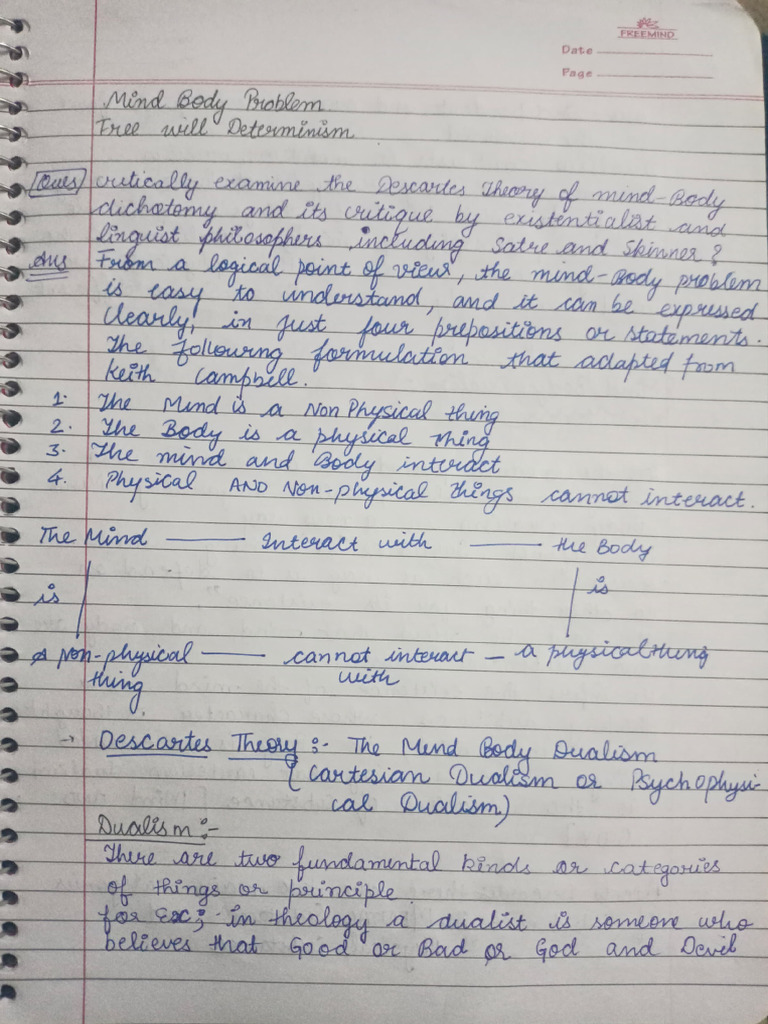 FREEMIND
Date
Page
Mind Body Problem
Free will Determinism
Ques) critically examine the Descartes Theory of mind-Body
dichotomy and its critique by existentialist and
linguist philosophers including Satre and Skinner?
Ans From a logical point of view, the mind-Body problem
is easy to understand, and it can be expressed
clearly, in just four prepositions or statements.
The following formulation that adapted from
Keith Campbell.
1. The Mind is a Non Physical thing
2. The Body is a physical thing
3. The mind and Body interact
4. Physical AND Non-physical things cannot interact.
The Mind —— Interact with —— the Body
is is
a Non-physical —— cannot interact – a physical thing
thing. with
→ Descartes Theory :- The Mind Body Dualism
(Cartesian Dualism or Psychophysi-
cal Dualism)
Dualism :-
There are two fundamental kinds or categories
of things or principle.
for Ex; - in theology a dualist is someone who
believes that Good or Bad or God and Devil